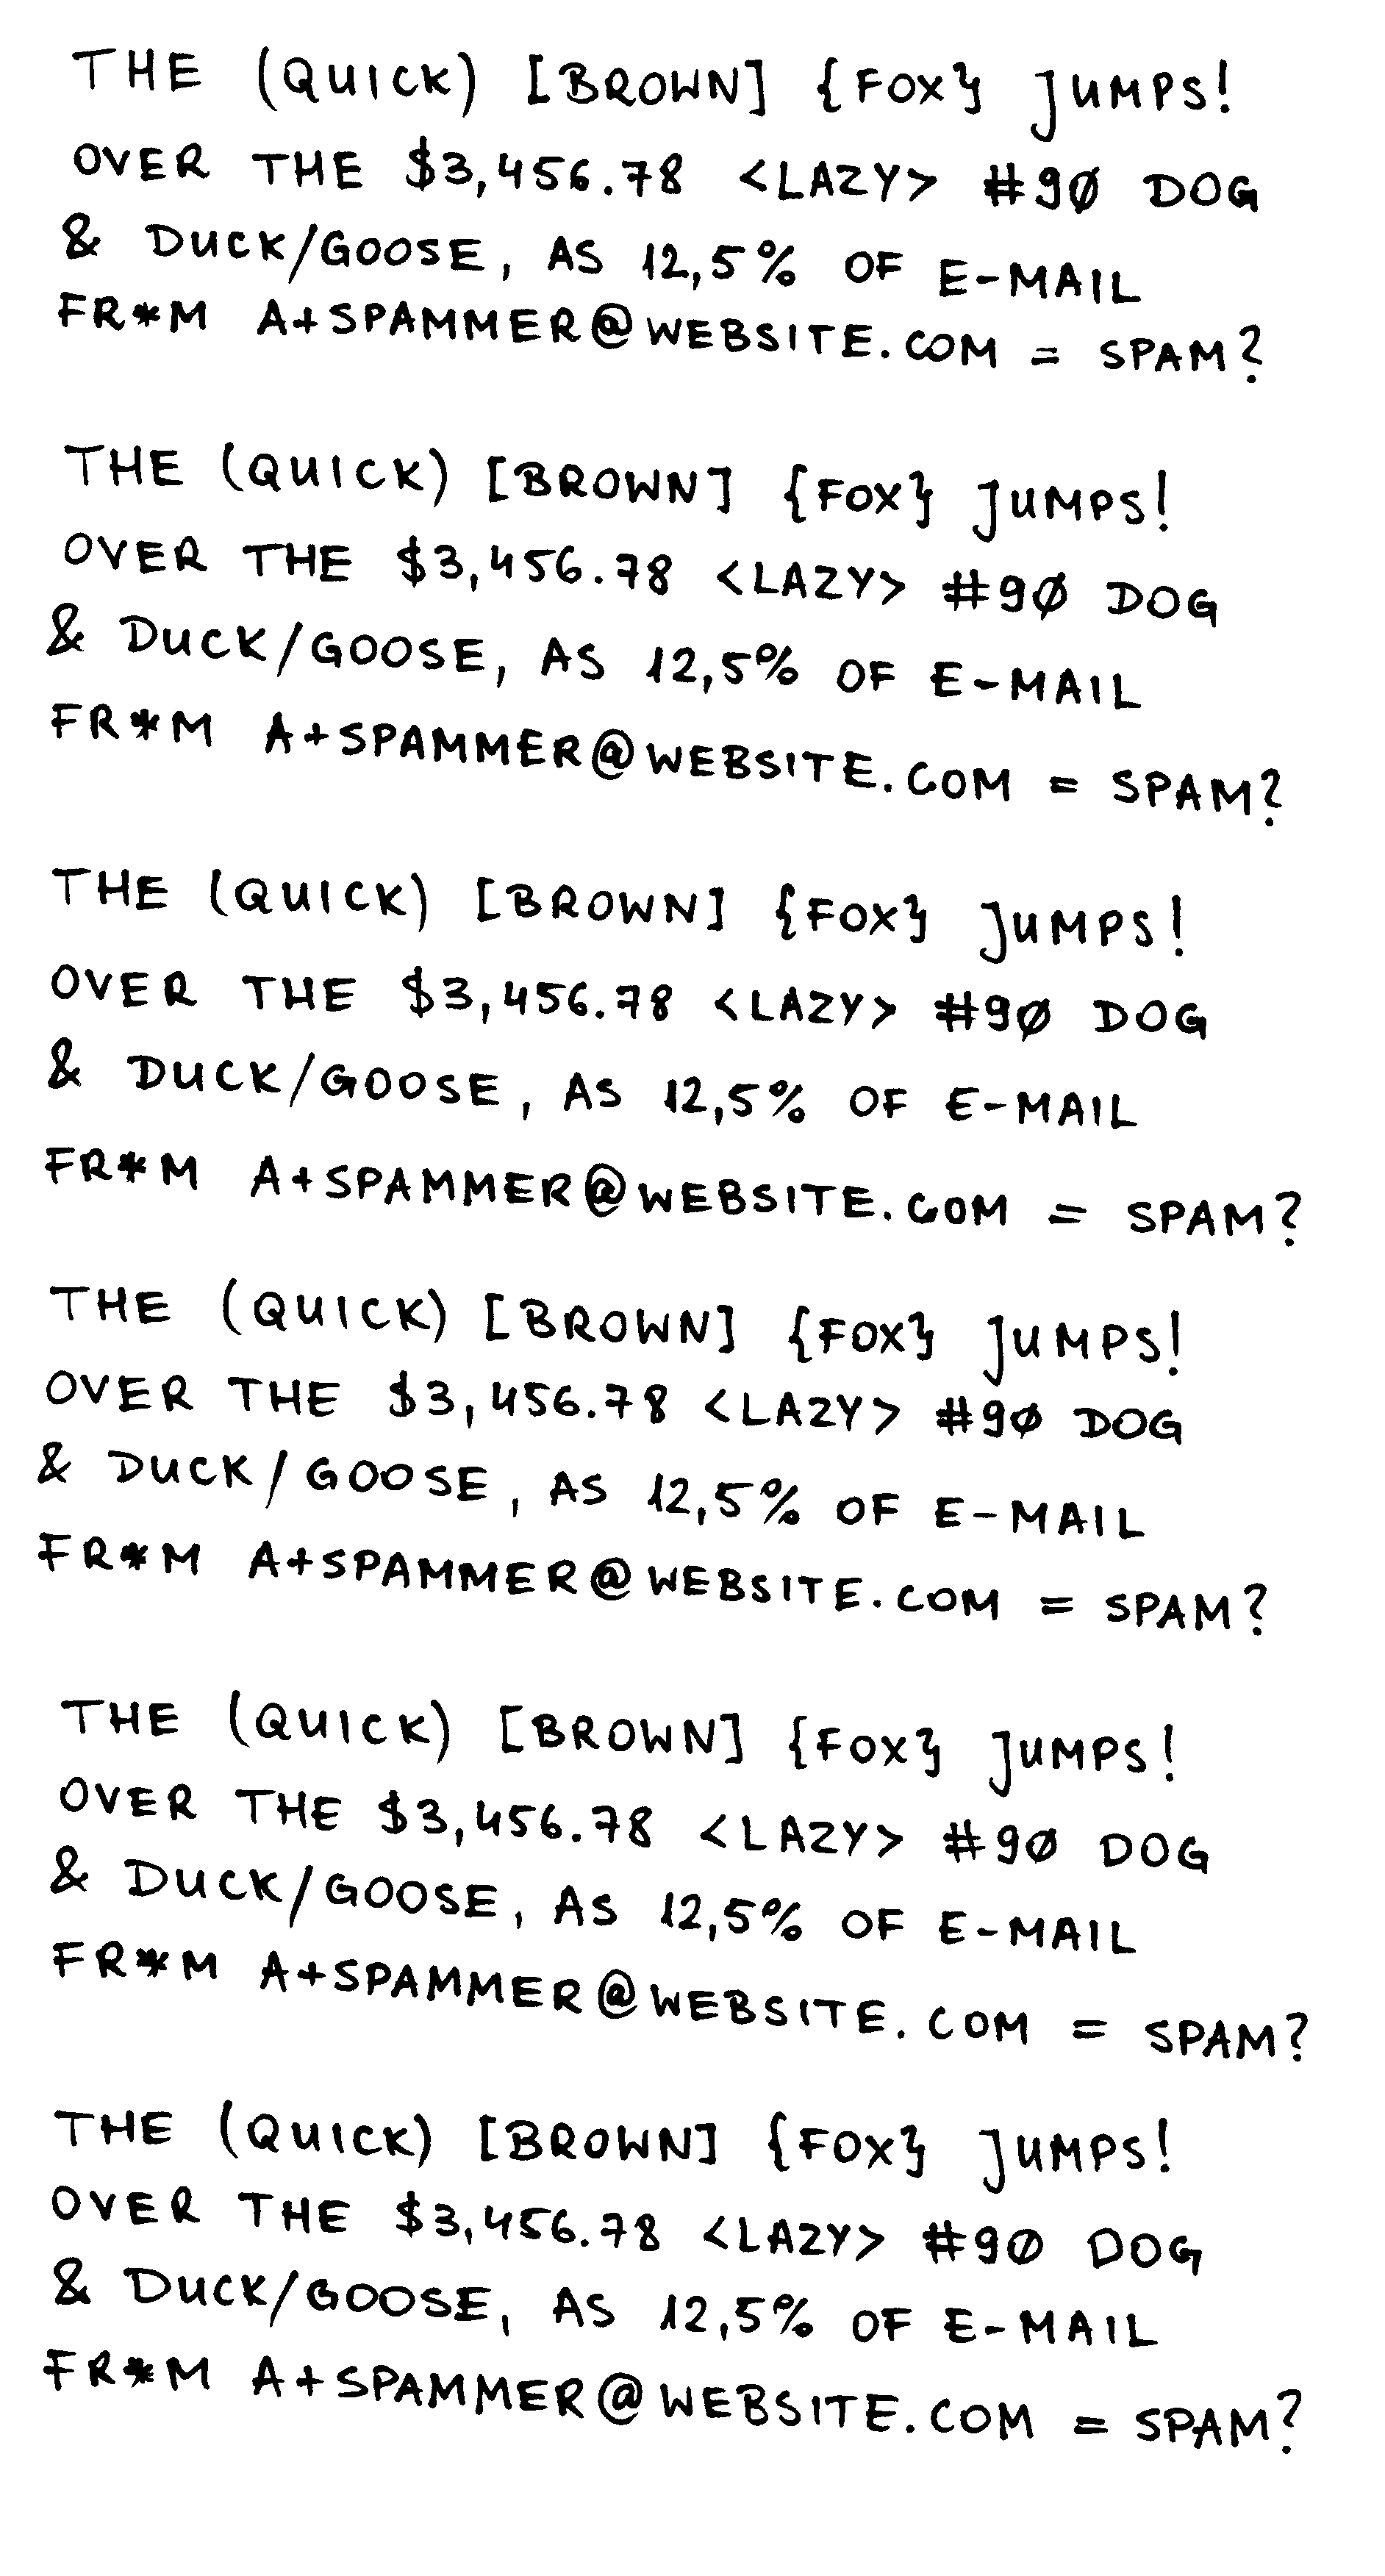 THE (QUICK) [BROWN] {FOX} JUMPS!
OVER THE $3,456.78 <LAZY> #9Ø DOG
& DUCK/GOOSE, AS 12,5% OF E-MAIL
FR*M A+SPAMMER@WEBSITE.COM = SPAM?
THE (QUICK) [BROWN] {FOX} JUMPS!
OVER THE $3,456.78 <LAZY> #9Ø DOG
& DUCK/GOOSE, AS 12,5% OF E-MAIL
FR*M A+SPAMMER@WEBSITE.COM = SPAM?
THE (QUICK) [BROWN] {FOX} JUMPS!
OVER THE $3,456.78 <LAZY> #9Ø DOG
& DUCK/GOOSE, AS 12,5% OF E-MAIL
FR*M A+SPAMMER@WEBSITE.COM = SPAM?
THE (QUICK) [BROWN] {FOX} JUMPS!
OVER THE $3,456.78 <LAZY> #9Ø DOG
& DUCK/GOOSE, AS 12,5% OF E-MAIL
FR*M A+SPAMMER@WEBSITE.COM = SPAM?
THE (QUICK) [BROWN] {FOX} JUMPS!
OVER THE $3,456.78 <LAZY> #9Ø DOG
& DUCK/GOOSE, AS 12,5% OF E-MAIL
FR*M A+SPAMMER@WEBSITE.COM = SPAM?
THE (QUICK) [BROWN] {FOX} JUMPS!
OVER THE $3,456.78 <LAZY> #9Ø DOG
& DUCK/GOOSE, AS 12,5% OF E-MAIL
FR*M A+SPAMMER@WEBSITE.COM = SPAM?